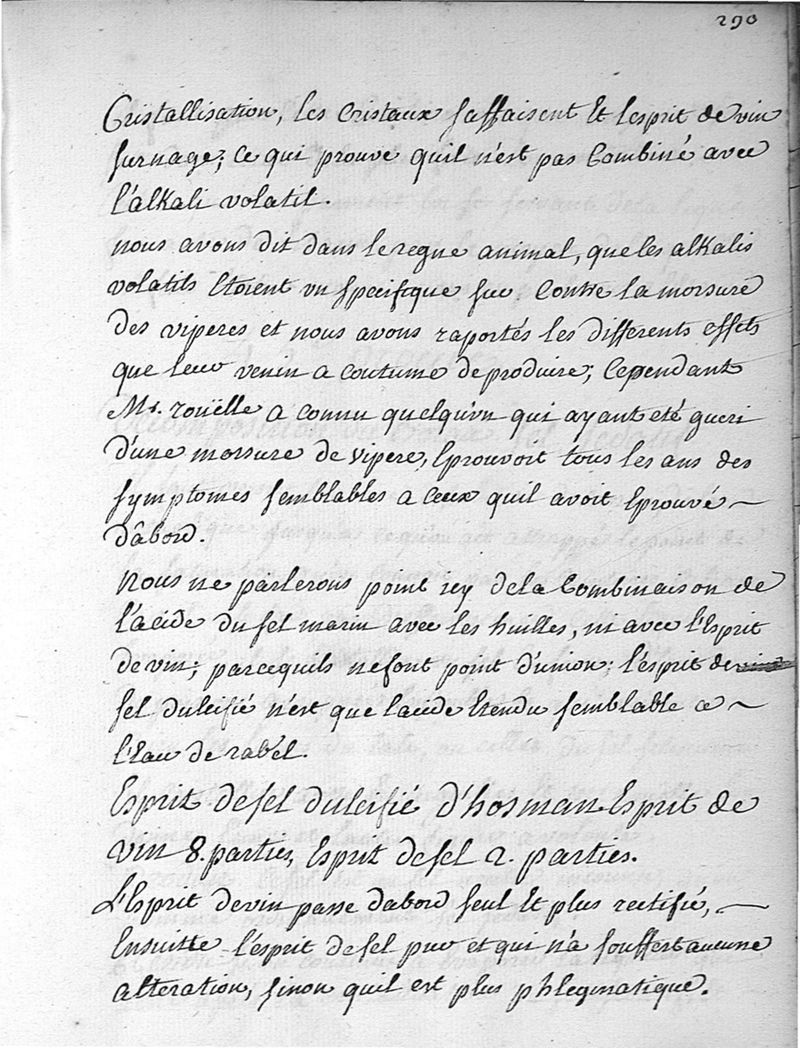 290
Cristallisation, les Cristaux s'affaisent Et l'esprit de vin
surnage; Ce qui prouve quil n'est pas Combiné avec
l'alkali volatil.
nous avons dit dans le regne animal, que les alkalis
volatils Etoient un specifique sur. Contre la morsure
des viperes et nous avons raportés les differents effets
que leur venin a coutume de produire; Cependant
Mr. roüelle a connu quelqu'vn qui ayant eté gueri
d'une morsure de vipere, Eprouvoit tous les ans des
symptomes semblables a Ceux quil avoit Eprouvé ~
dâbord.
Nous ne parlerons point icy de la Combinaison de
l'acide du sel marin avec les huilles, ni avec l'Esprit
de vin; parcequils ne font point d'union; l'esprit de
sel dulcifié n'est que l'acide Etendu semblable a ~
l'Eau de rabel.
Esprit de sel dulcifié d'hosman. Esprit de
vin 8. parties, Esprit de sel 2. parties.
L'Esprit de vin passe dabord seul Et plus rectifié, ~
Ensuitte l'esprit de sel pur et qui n'a souffert aucune
alteration, sinon quil est plus phlegmatique.